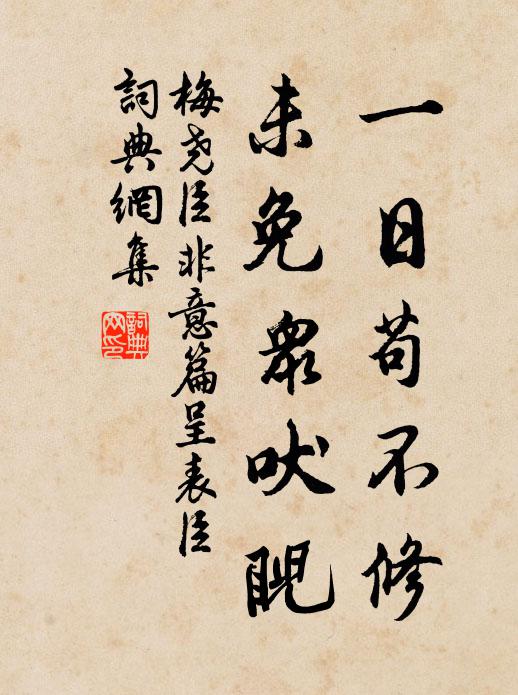 一日苟不修
未免衆吠睨
梅尧臣非意篇呈表臣
詞典網集
詞典
网印